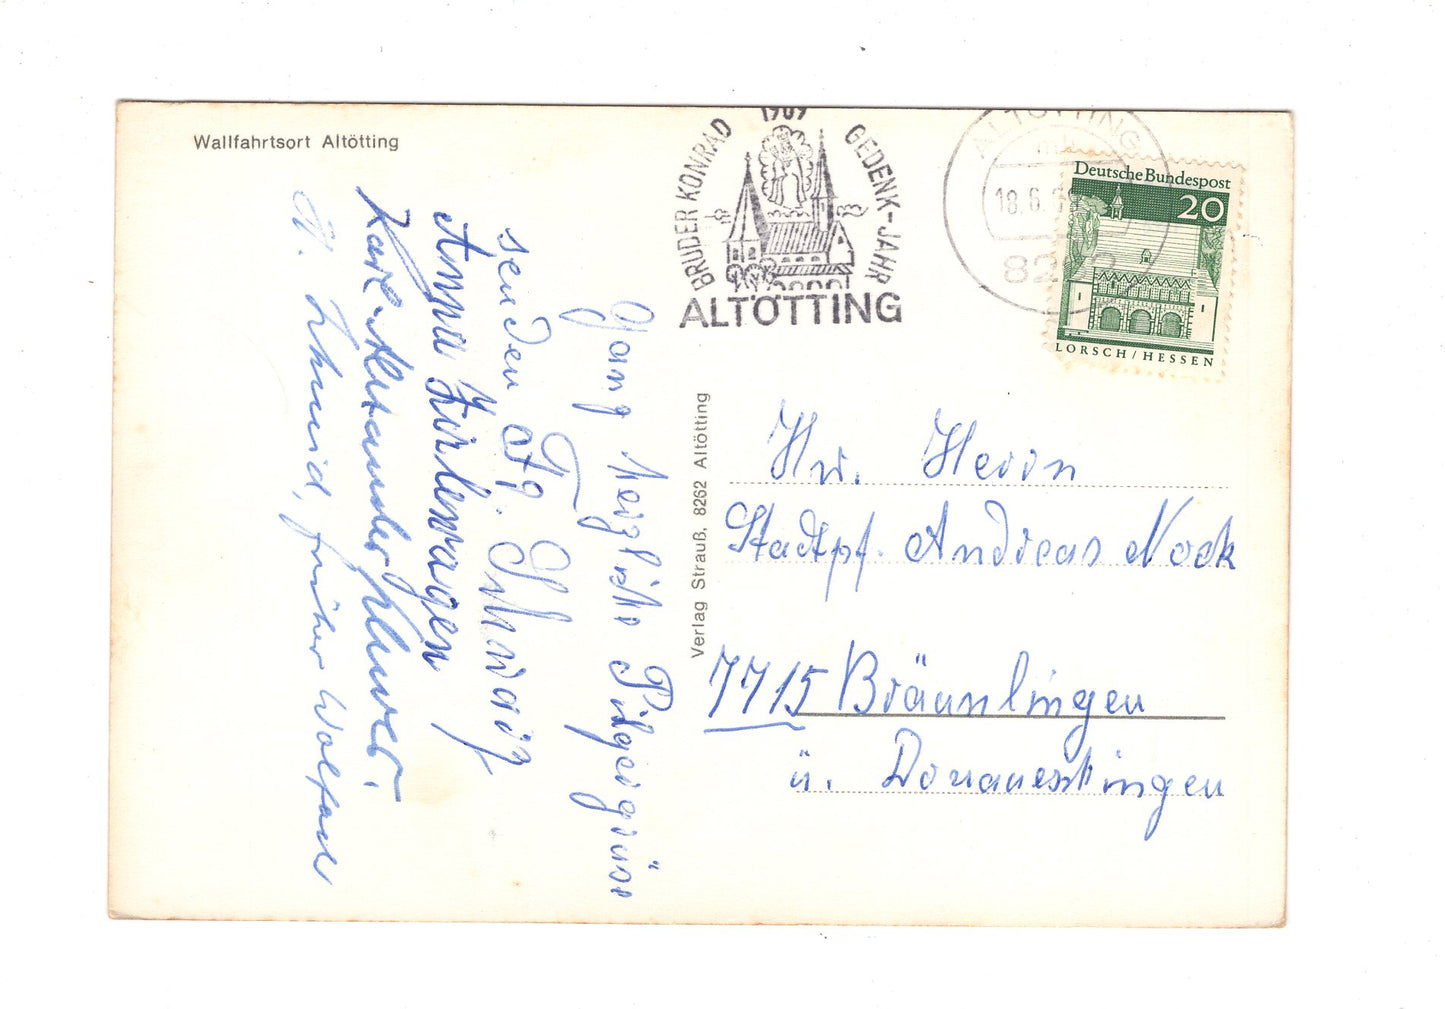 Wallfahrtsort Altötting
1969
BRUDER KONRAD GEDENK-JAHR
ALTÖTTING
ALTÖTTING
18.6.69
Deutsche Bundespost
20
LORSCH/HESSEN
Ganz herzliche Pilgergrüsse
senden Fg. Schwarz
Anna Zorlenwagen
Karl-Alexander
früher Wolfach
Verlag Strauß, 8262 Altötting
Hw. Herrn
Stadtpf. Andreas Nock
7715 Bräunlingen
ü. Donauestingen